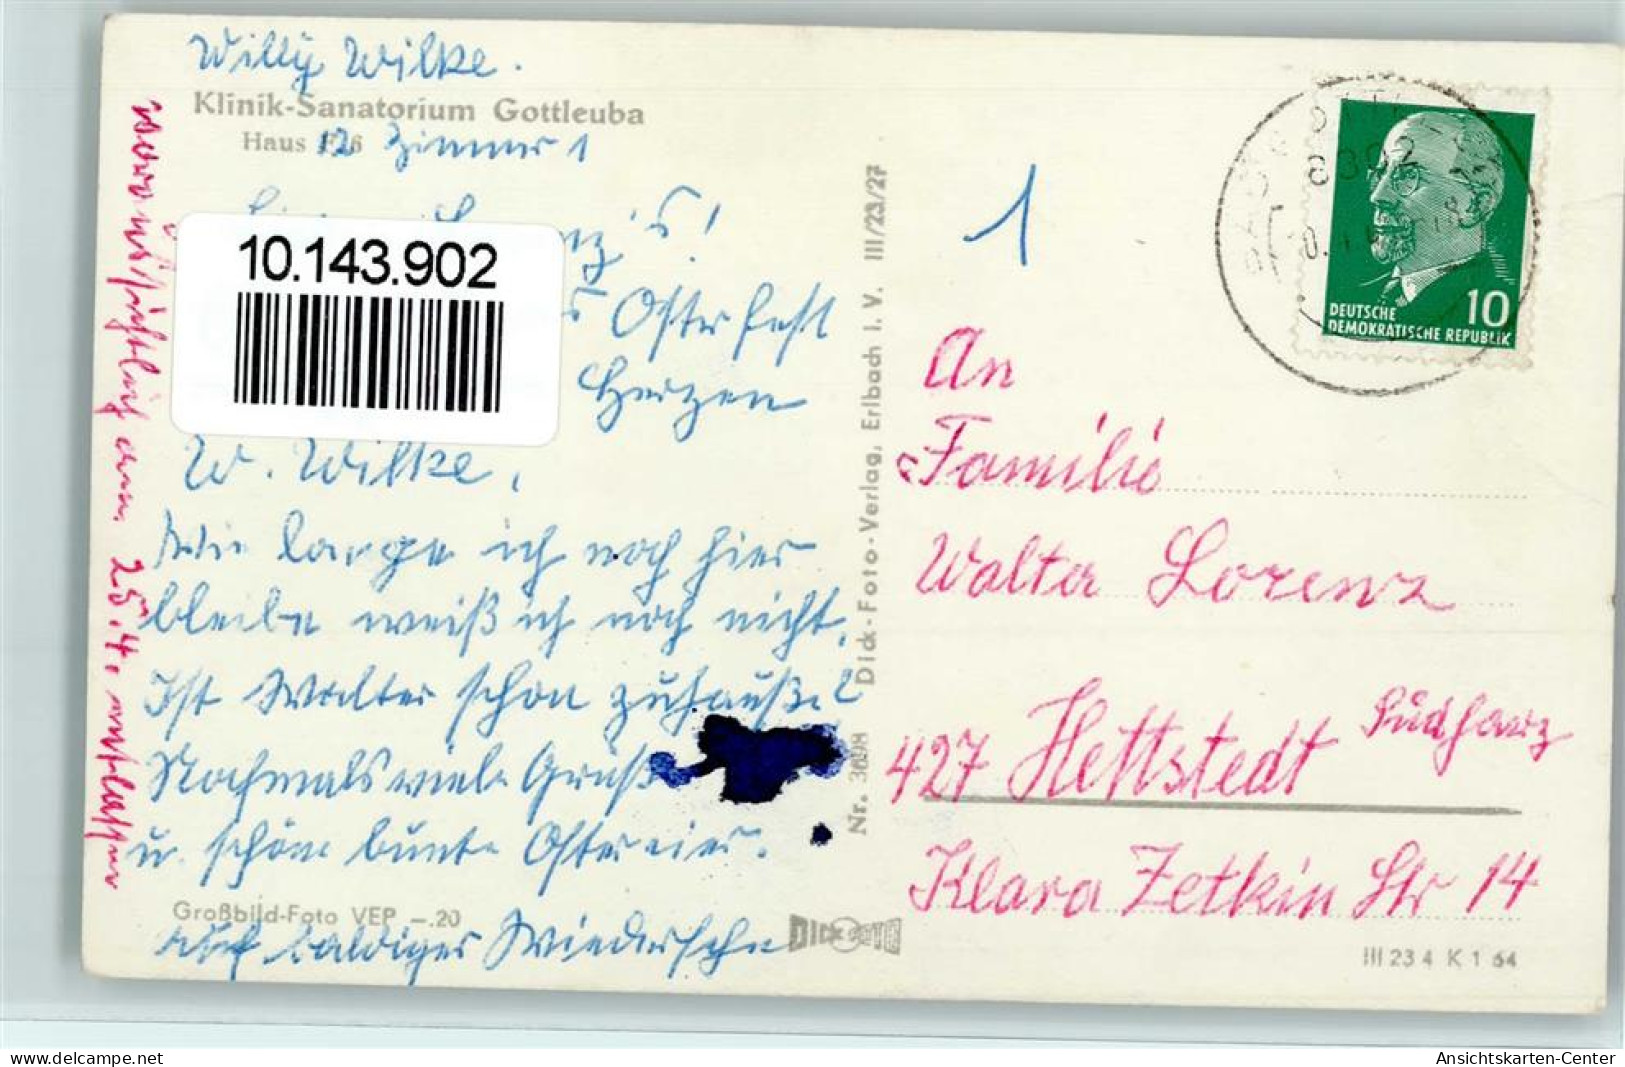 Willy Wilke.
Klinik-Sanatorium Gottleuba
Haus 12 Zimmer 1
10.143.902
Osterfest
Herzen
W. Wilke,
Wie lange ich noch hier
bleibe weiß ich noch nicht.
Ist Walter schon zuhauße?
Nochmals viele Grüße
u. schöne bunte Ostereier.
Großbild-Foto VEP -.20
Auf baldiges Wiedersehn
voraussichtlich am 25.4. entlassen
Nr. 3698 Dick-Foto-Verlag, Erlbach i. V. III/23/27
1
8302
DEUTSCHE
DEMOKRATISCHE REPUBLIK
10
An
Familie
Walter Lorenz
427 Hettstedt Südharz
Klara Zetkin Str 14
DICK FOTO
III 23 4 K 1 64
www.delcampe.net
Ansichtskarten-Center